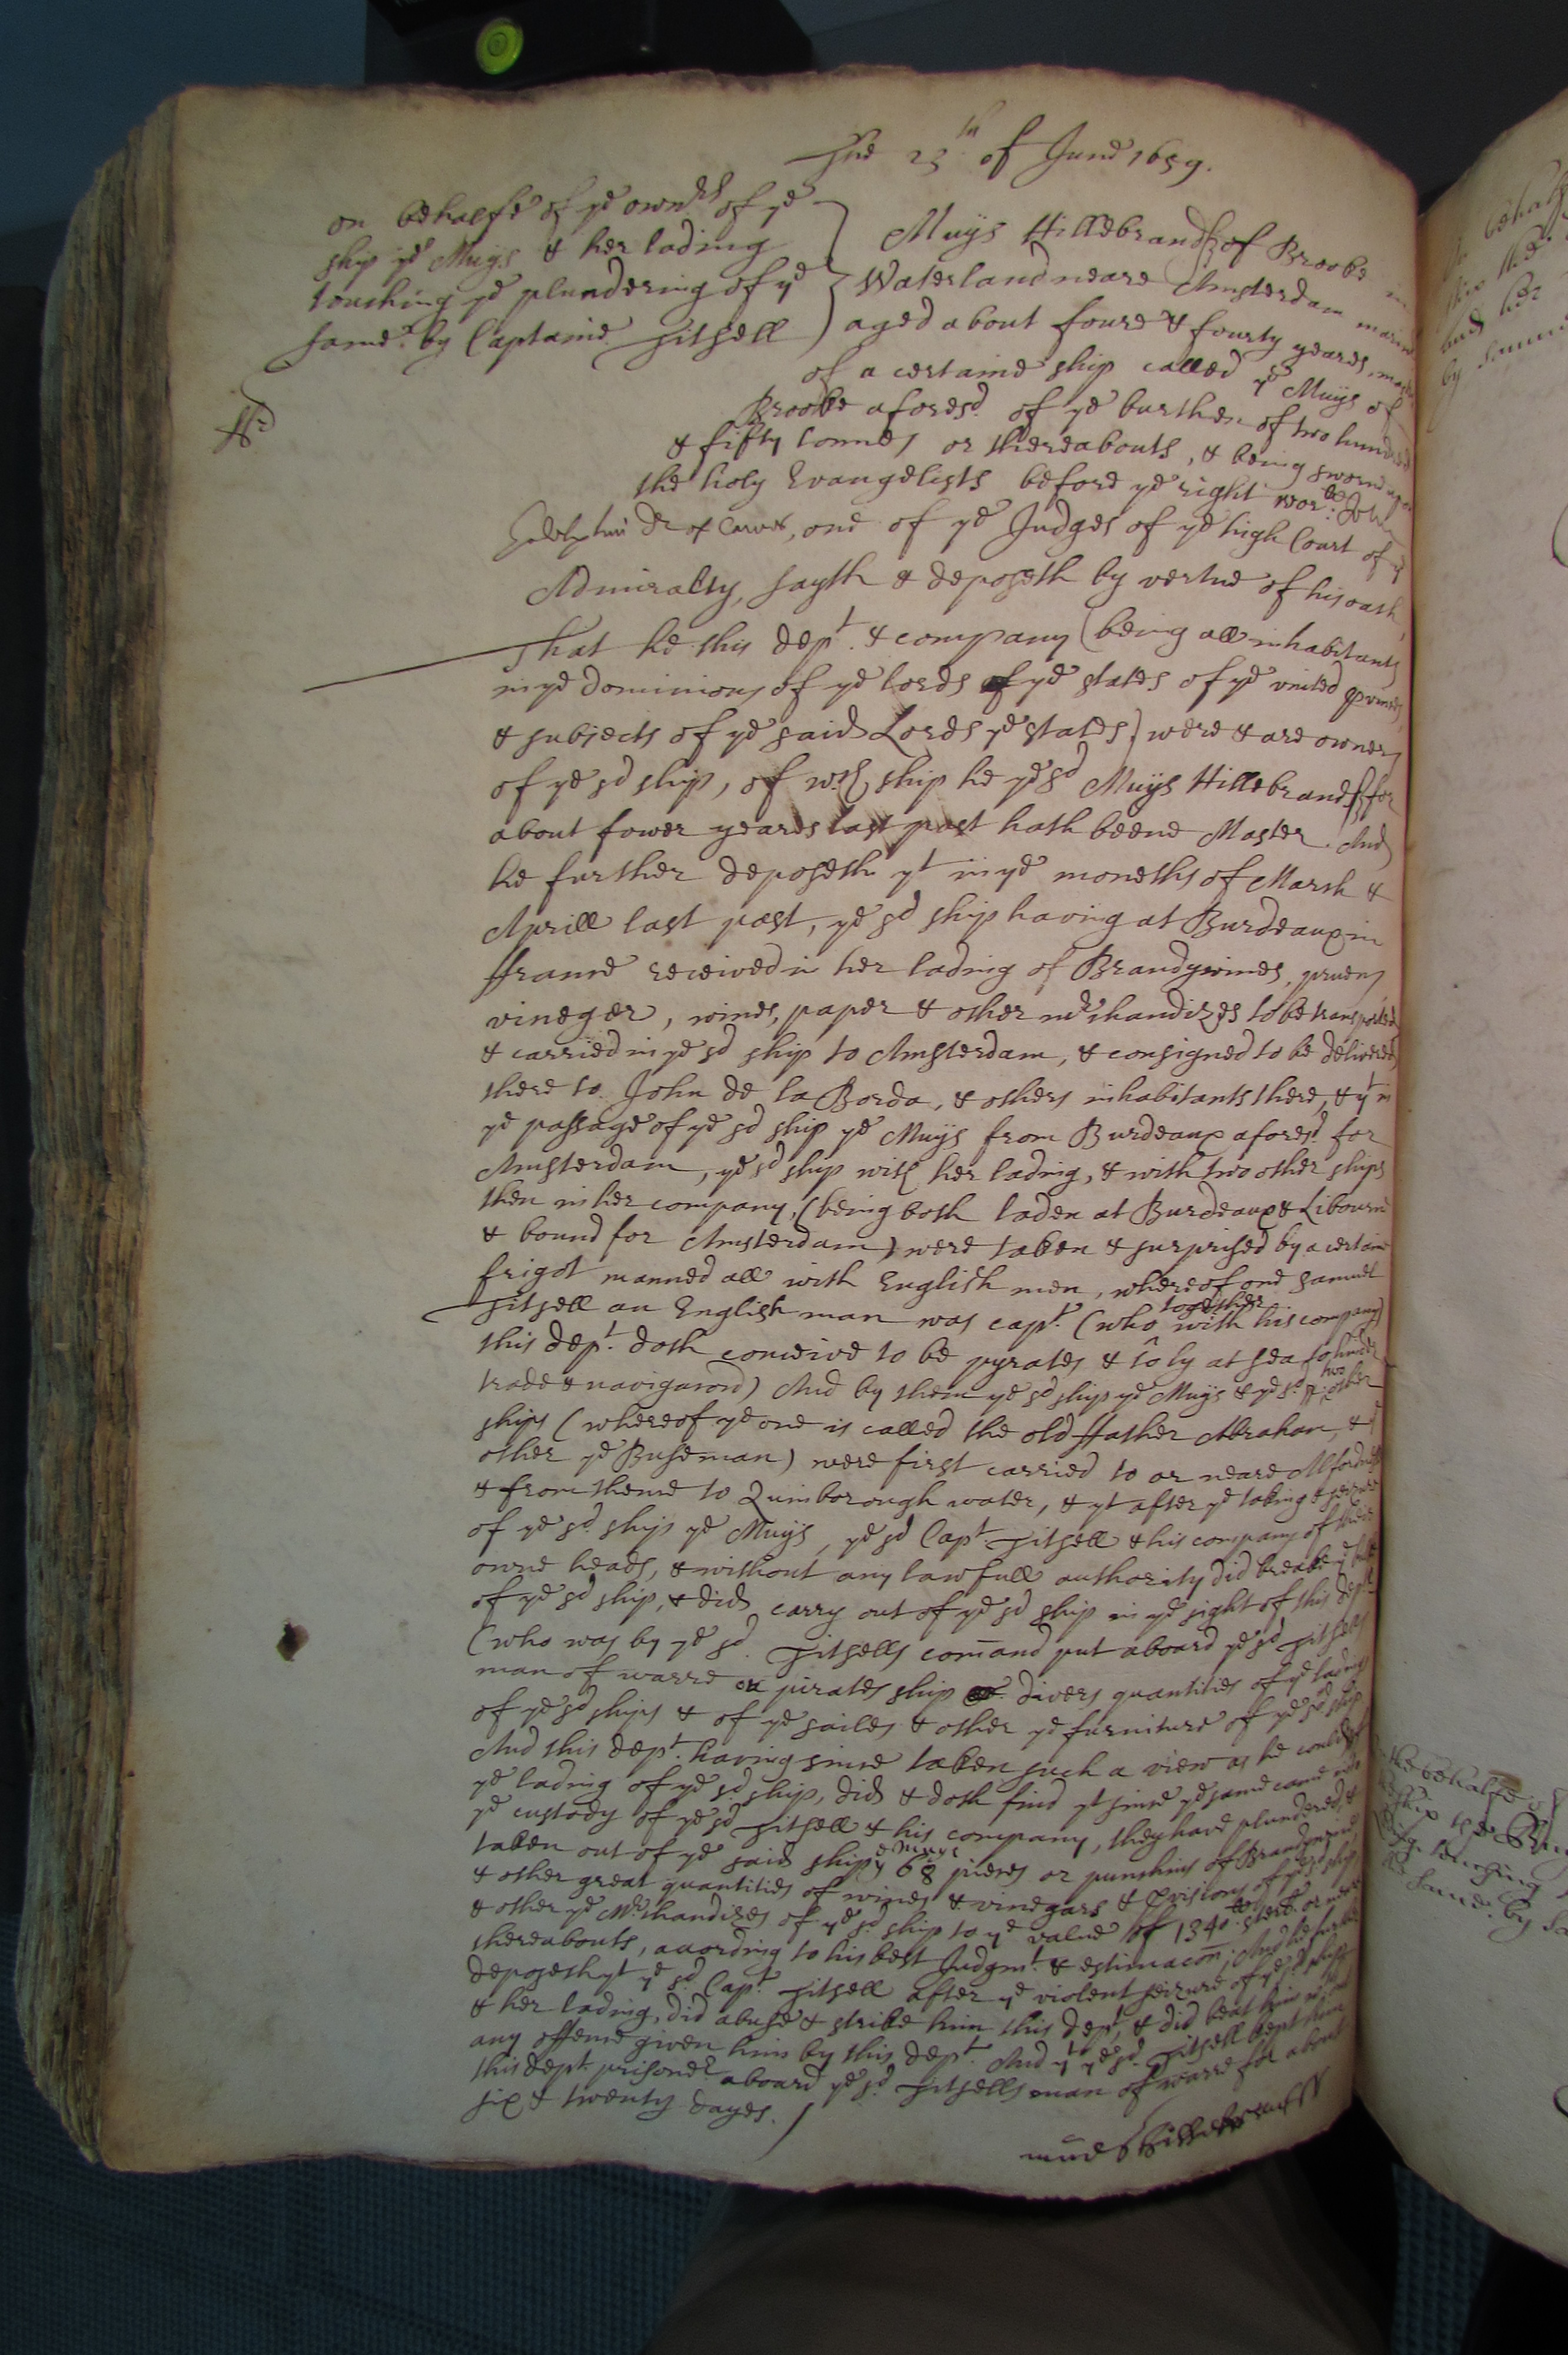 The 23th of June 1659.
on behalfe of ye ownrs of ye
ship ye Muys & her lading
touching ye plundering of ye
same by Captaine Titsell
Muys Hillebrandss of Brooke in
Waterland neare Amsterdam
aged about foure & fourty yeares,
of a certaine ship called ye Muys of
Brooke aforesd. of ye burthen of two hundred
& fifty tonnes or thereabouts, & being sworne
the holy Evangelists before ye right worll. John
Godolphin Dr of Lawes, one of ye Judges of ye high Court of ye
Admiralty, sayth & deposeth by vertue of his oath,
That he this dept. & company (being all inhabitants
in ye dominions of ye lords of ye states of ye united
& subjects of ye said Lords ye states) were & are owners
of ye sd ship, of wch ship he ye sd Muys Hillebrandss for
about fower yeares last past hath beene Master. And
he further deposeth yt in ye moneths of March &
Aprill last past, ye sd ship having at Burdeaux in
ffrance received in her lading of Brandywines, pruens
vineger, wines, paper & other mrchandizes to be transported
& carried in ye sd ship to Amsterdam, & consigned to be delivered
there to John de la Borda, & others inhabitants there, & yt in
ye passage of ye sd ship ye Muys from Burdeaux aforesd. for
Amsterdam, ye sd ship with her lading, & with two other ships
then in her company, (being both laden at Burdeaux & Libourne
& bound for Amsterdam) were taken & surprised by a certaine
frigot manned all with English men, whereof one Samuel
Titsell an English man was capt. (who together with his company
this dept. doth conceive to be pyrates & to ly at sea to hinder
trade & navigacon) And by them ye sd ship ye Muys & ye sd. two other
ships (whereof ye one is called the old ffather Abraham, & ye
other ye Buseman) were first carried to or neare
& from thence to Quinborough water, & yt after ye taking & seizure
of ye sd. ship ye Muys, ye sd Capt Titsell & his company of their
owne heads, & without any lawfull authority did breake
of ye sd ship, & did carry out of ye sd ship in ye sight of this dept
(who was by ye sd. Titsells comand put aboard ye sd Titsells
man of warre or pirates ship divers quantities of ye lading
of ye sd ships & of ye sailes & other ye furniture of ye sd ship
And this dept. having since taken such a view as he could of
ye lading of ye sd. ship, did & doth find yt since ye same came into
ye custody of ye sd Titsell & his company, they have plundered &
taken out of ye said ship ye Muys 68 pieces or punshins of Brandywine
& other great quantities of wines & vinegars & pvisions of ye sd ship
& other ye Mrchandizes of ye sd. ship to ye value of 1340 li. sterl. or neere
thereabouts, according to his best Judgmt. & estimacon. And he further
deposeth yt ye sd Capt. Titsell after ye violent seizure of ye sd. ship
& her lading, did abuse & strike him this dept, & did beat him
any offence given him by this dept. And yt ye sd. Titsell kept him
this dept prisoner aboard ye sd. Titsells man of warre for about
six & twenty dayes.